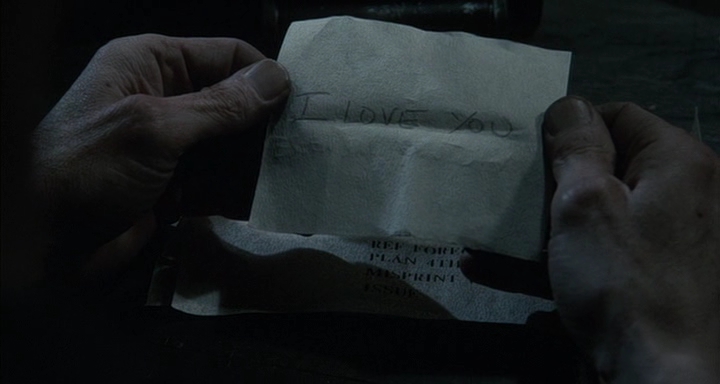 I LOVE YOU
REF FORE
PLAN 4TH
MISPRINT
ISSUE